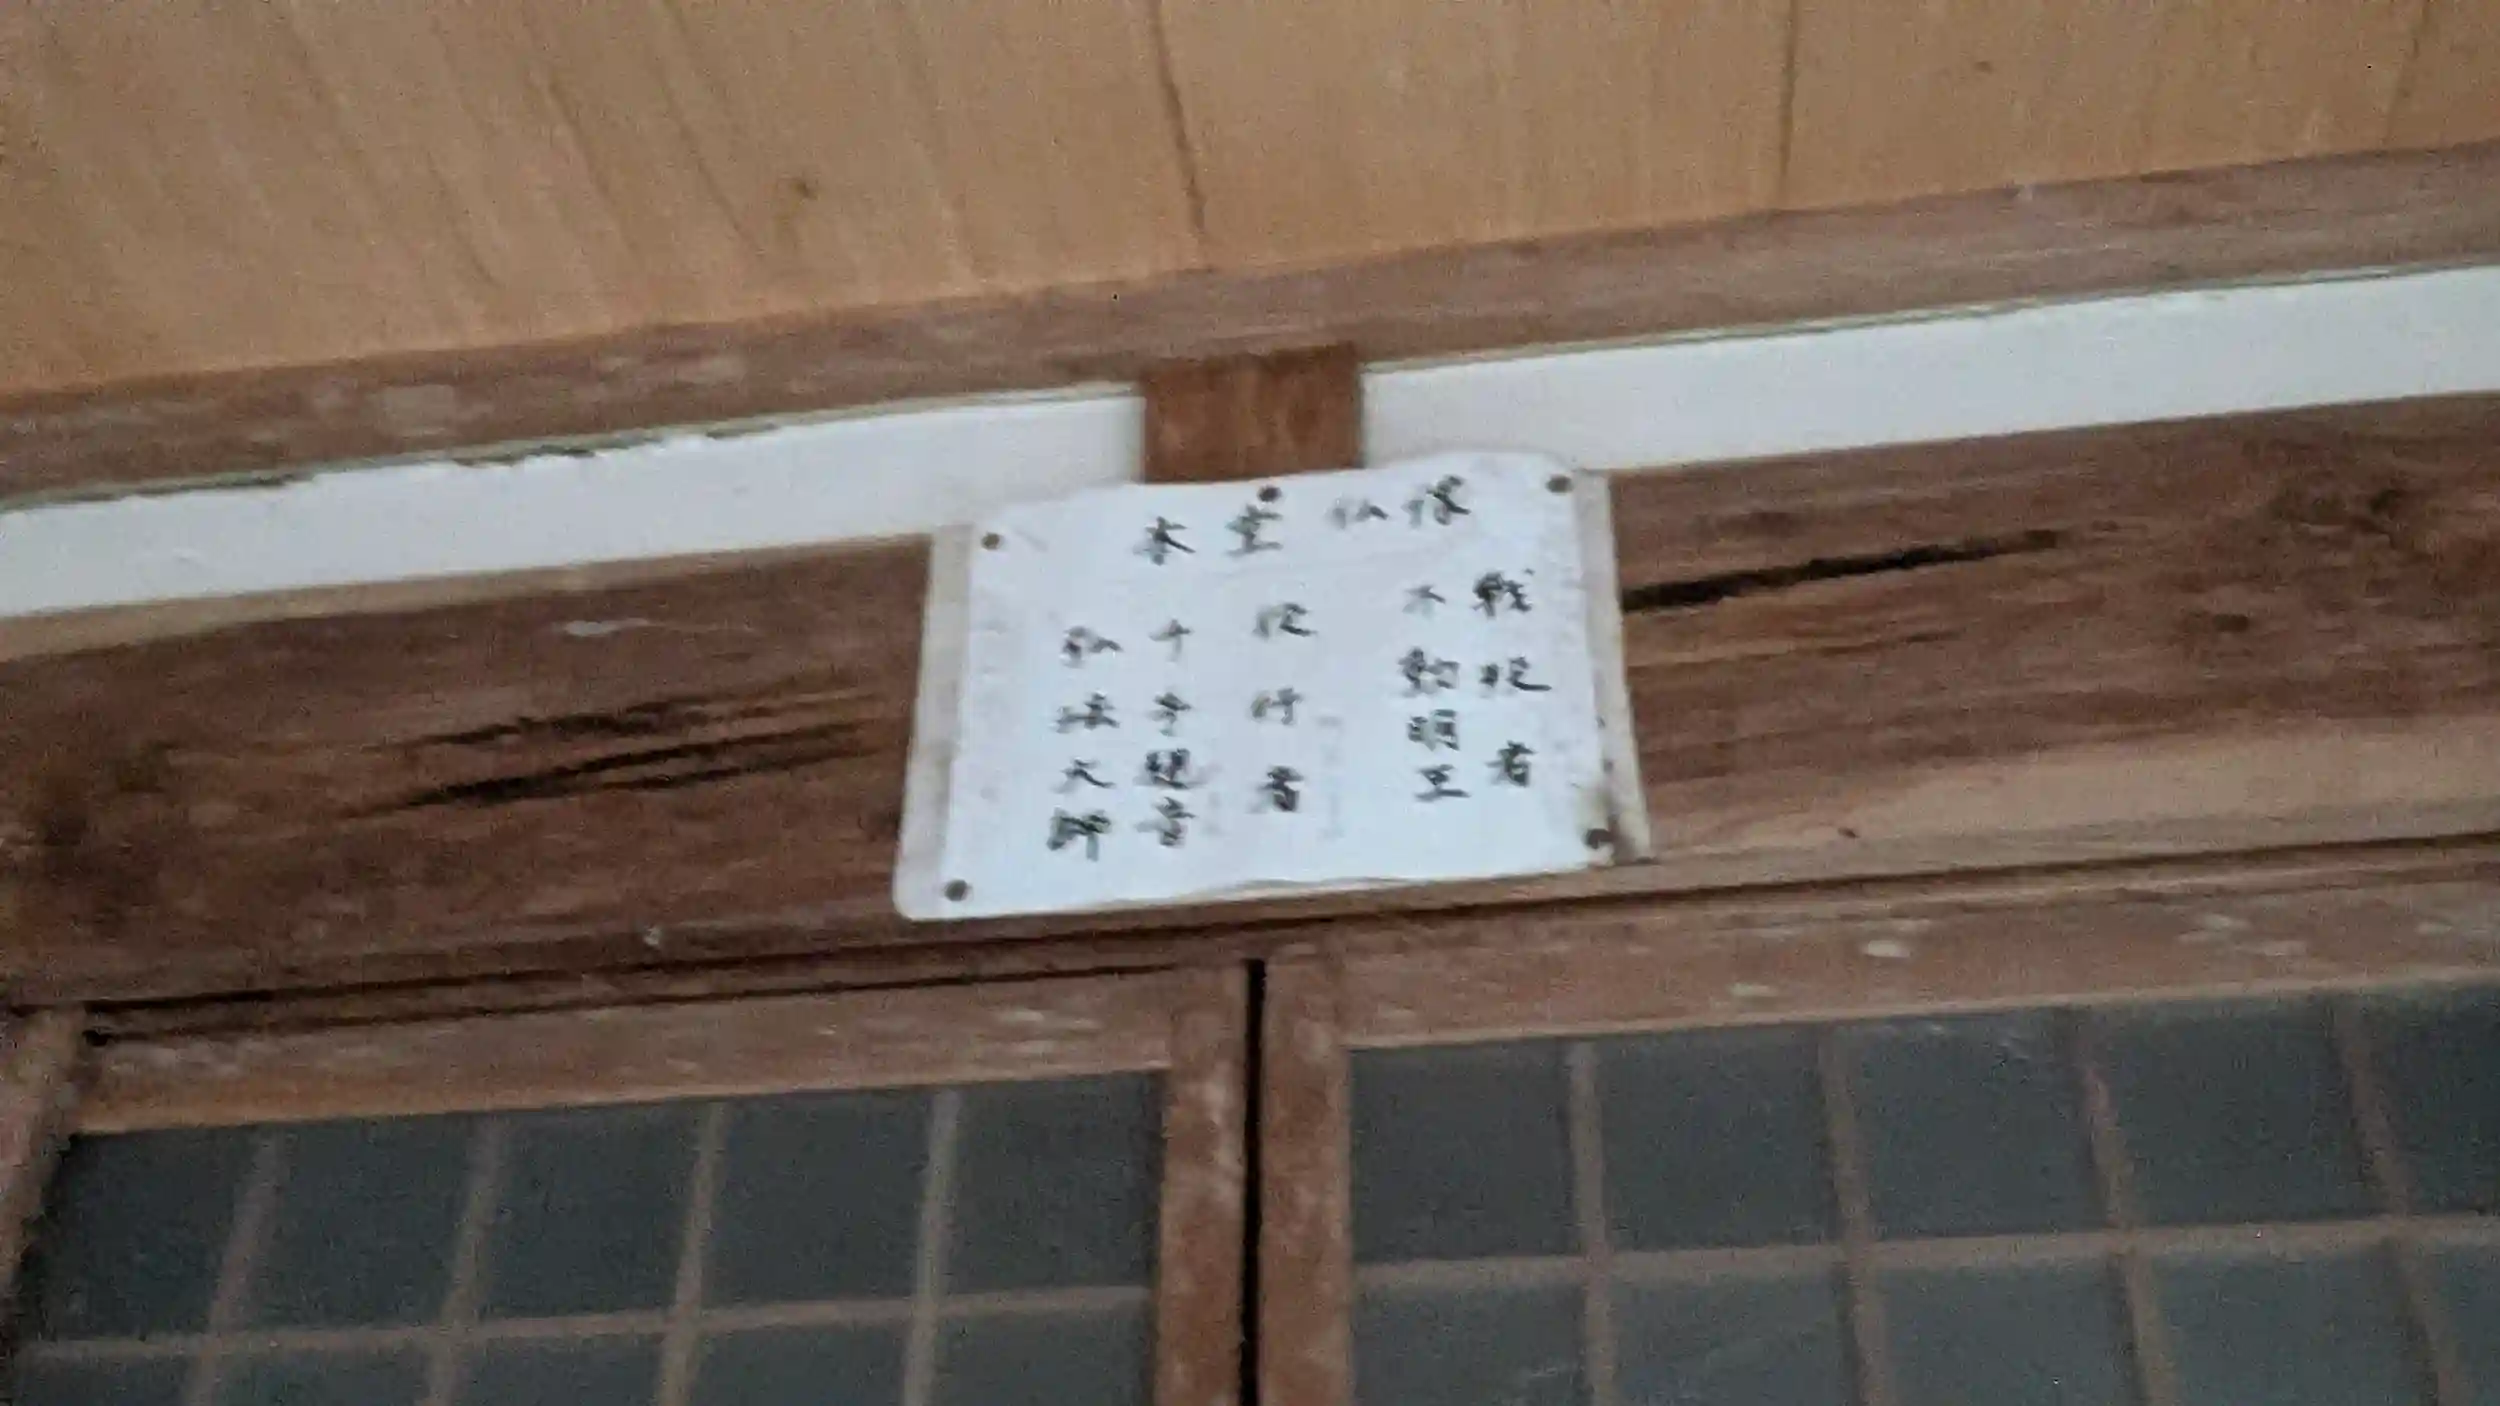 本堂仏様
戦没者
不動明王
役行者
千手観音
弘法大師